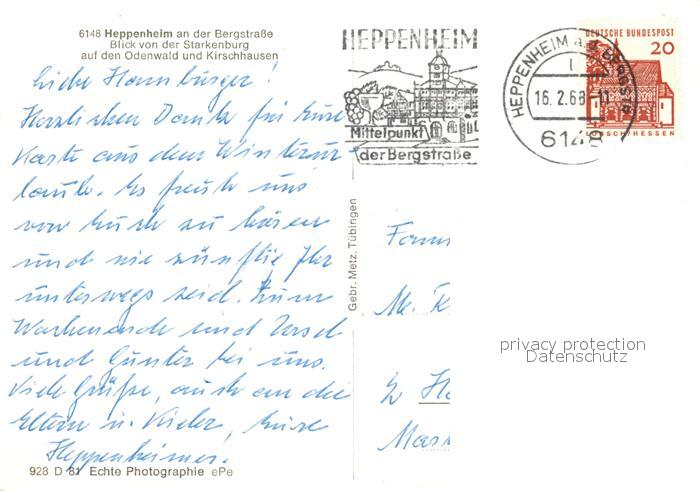 6148 Heppenheim an der Bergstraße
Blick von der Starkenburg
auf den Odenwald und Kirschhausen
Liebe Hamburger!
Herzlichen Dank für Eure
Karte aus dem Winterur-
laub. Es freute uns
von Euch zu hören
und wie zünftig Ihr
unterwegs seid. Zum
Wochenende sind Ursel
und Günter bei uns.
Viele Grüße, auch an die
Eltern u. Kieler, Eure
Heppenheimer.
928 D 81 Echte Photographie ePe
Gebr. Metz, Tübingen
HEPPENHEIM
Mittelpunkt
der Bergstraße
HEPPENHEIM a.d. BERGSTR
16.2.68
6148
DEUTSCHE BUNDESPOST
20
HESSEN
Fam
Mar
privacy protection
Datenschutz